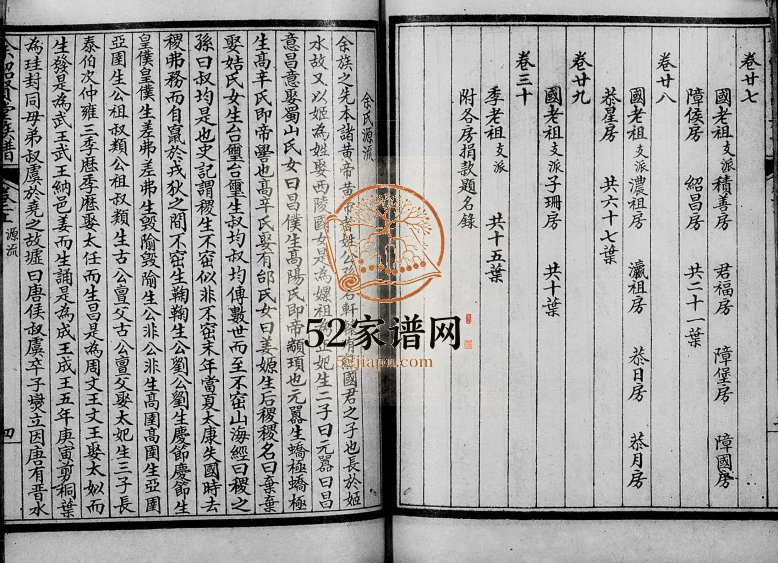 卷廿七
國老祖支派 積善房 君福房 障堡房 障國房
障侯房 紹昌房 共二十一葉
卷廿八
國老祖支派 濃祖房 瀛祖房 恭日房 恭月房
恭星房 共六十七葉
卷廿九
國老祖支派 子珊房 共十葉
卷三十
季老祖支派 共十五葉
附各房捐款題名錄
余氏源流
余族之先本諸黃帝黃帝 姓公孫名軒轅有 國君之子也長於姬
水故又以姬為姓娶西陵國女是為嫘祖為正妃生二子曰元囂曰昌
意昌意娶蜀山氏女曰昌僕生高陽氏即帝顓頊也元囂生蟜極蟜極
生高辛氏即帝嚳也高辛氏娶有邰氏女曰姜嫄生后稷稷名曰棄棄
娶姞氏女生台璽台璽生叔均叔均傳數世而至不窋山海經曰稷之
孫曰叔均是也史記謂稷生不窋似非不窋末年當夏太康失國時去
稷弗務而自竄於戎狄之間不窋生鞠鞠生公劉公劉生慶節慶節生
皇僕皇僕生差弗差弗生毀隃毀隃生公非公非生高圉高圉生亞圉
亞圉生公祖叔類公祖叔類生古公亶父古公亶父娶太妃生三子長
泰伯次仲雍三季歷季歷娶太任而生昌是為周文王文王娶太姒而
生發是為武王武王納邑姜而生誦是為成王成王五年庚寅剪桐葉
為珪封同母弟叔虞於堯之故墟曰唐侯叔虞卒子燮立因唐有晉水
族譜
源流
四
52家谱网
52jiapu.com